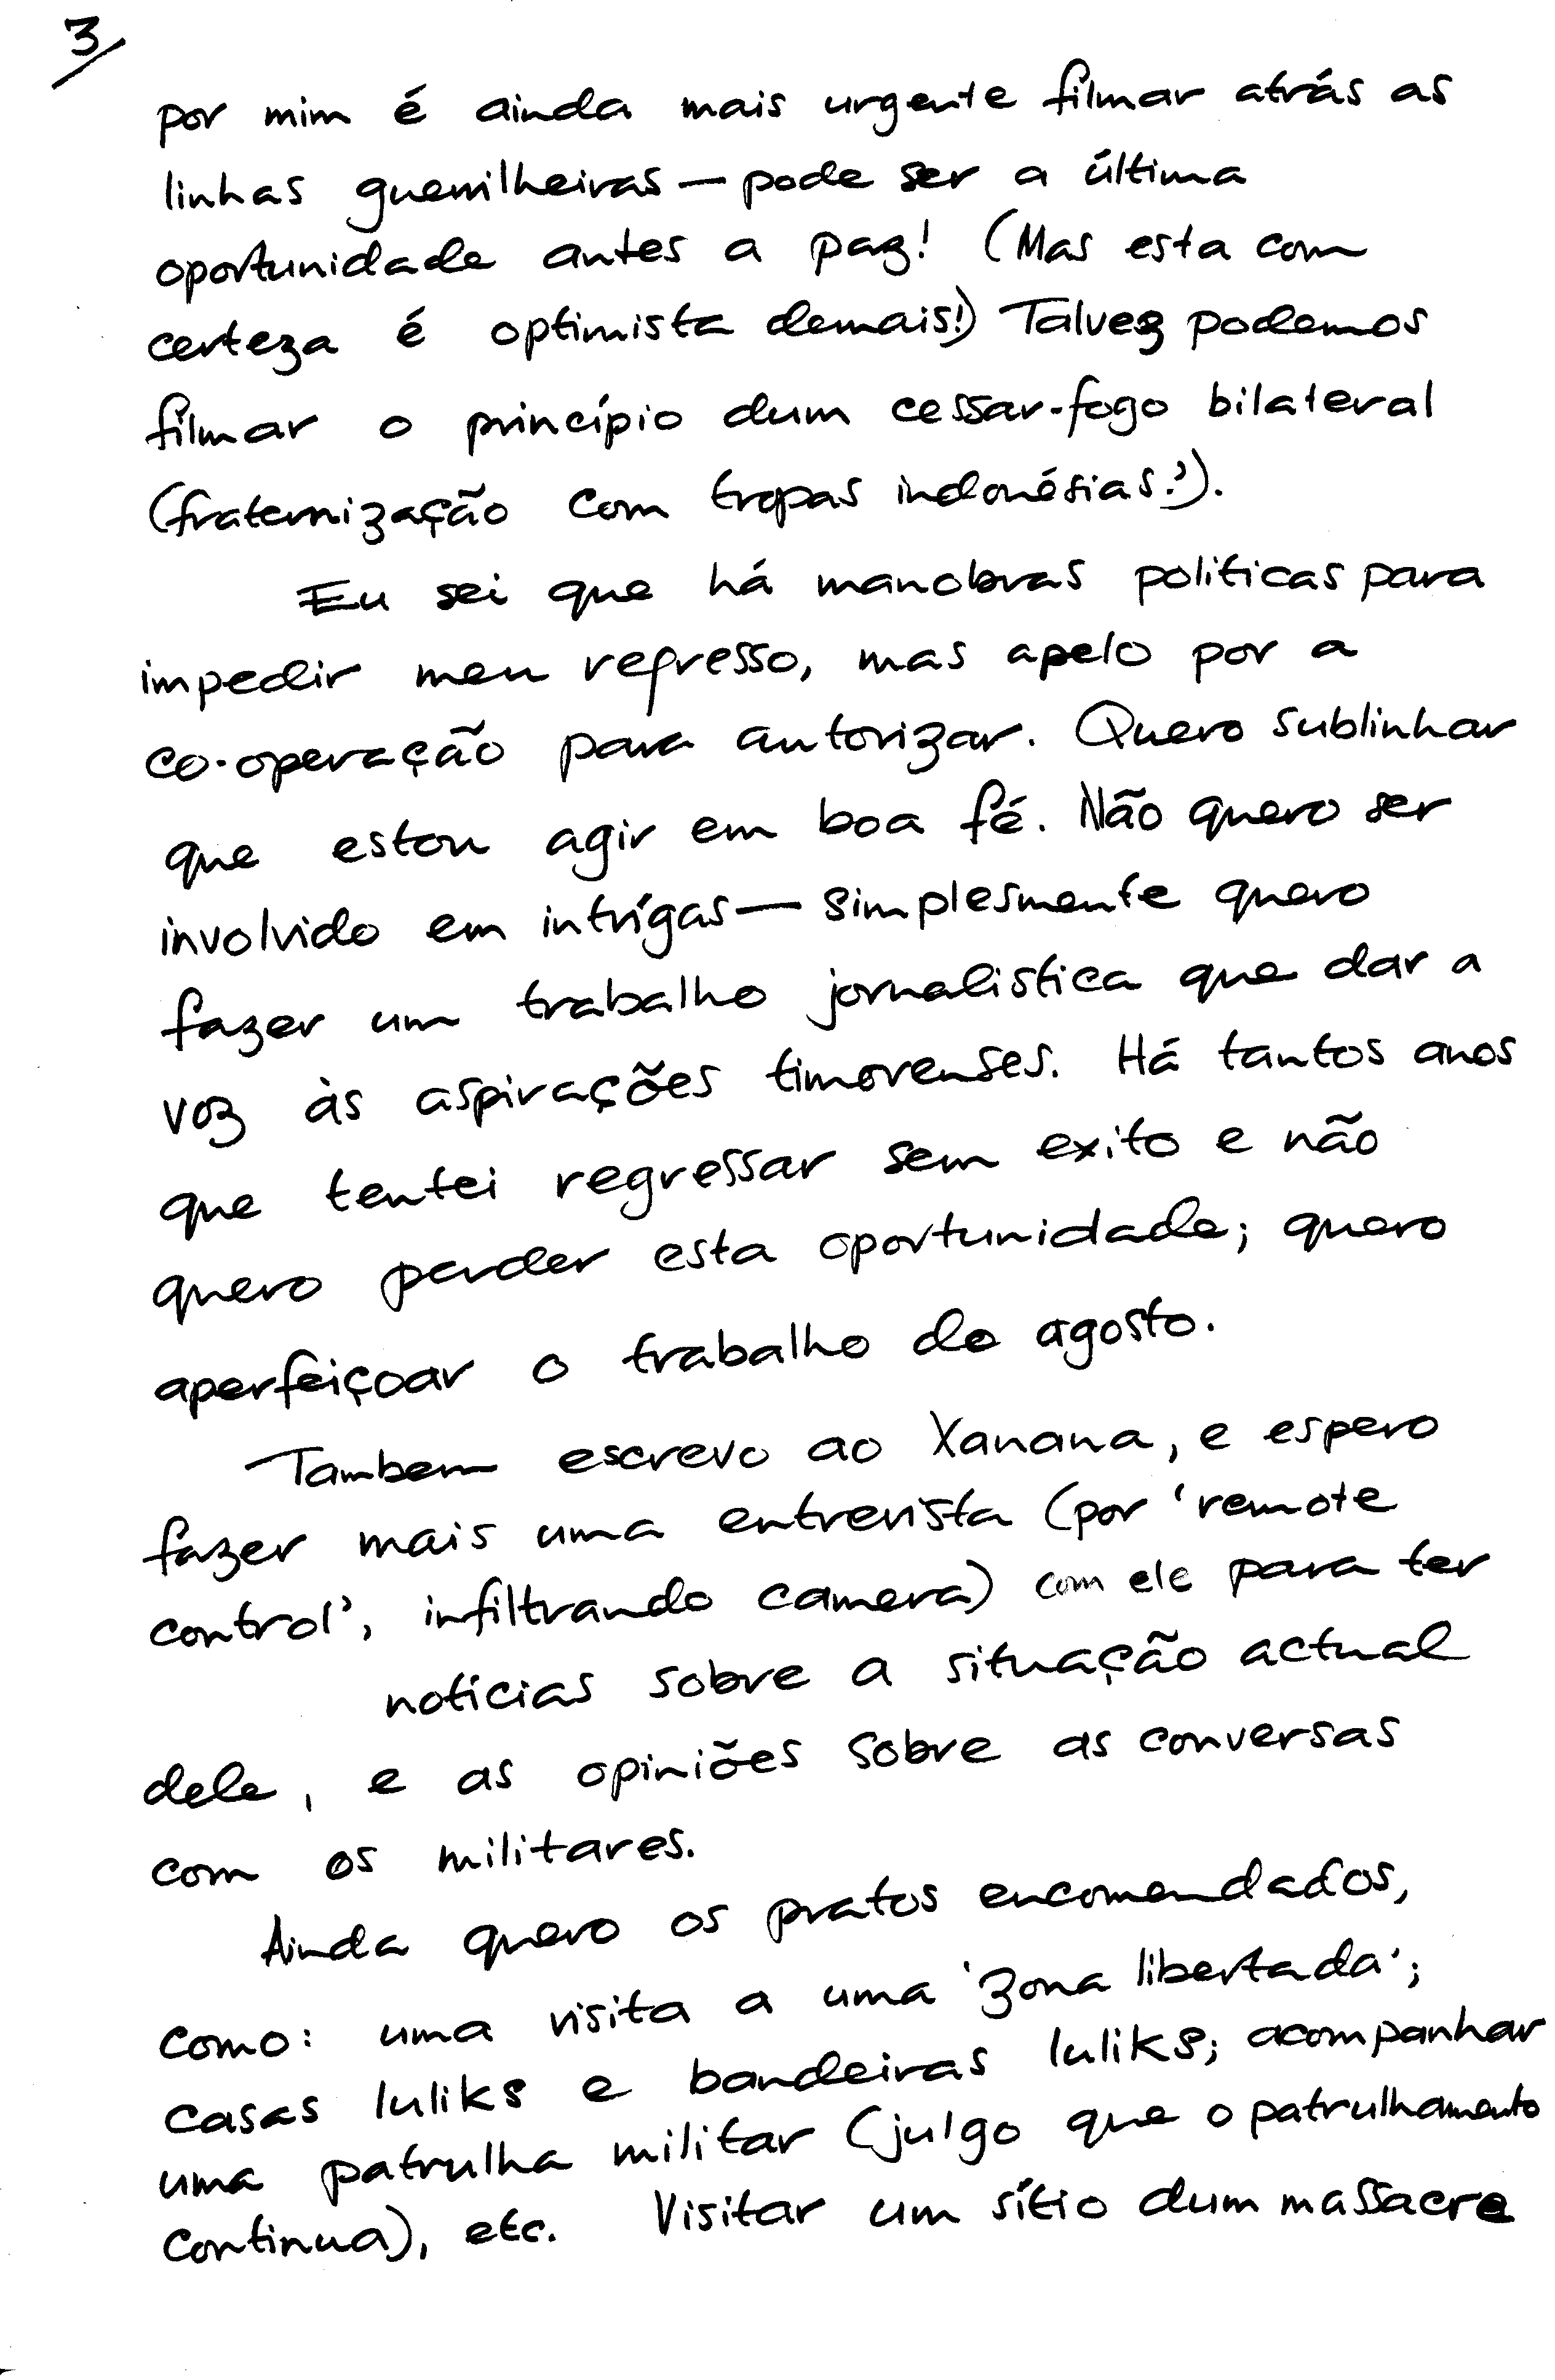 3/
por mim é ainda mais urgente filmar atrás as
linhas guerrilheiras — pode ser a última
oportunidade antes a paz! (Mas esta com
certeza é optimista demais!) Talvez podemos
filmar o princípio dum cessar-fogo bilateral
(fraternização com tropas indonésias?!).
Eu sei que há manobras politicas para
impedir meu regresso, mas apelo por a
co-operação para autorizar. Quero sublinhar
que estou agir em boa fé. Não quero ser
involvido em intrígas — simplesmente quero
fazer um trabalho jornalistica que dar a
voz às aspirações timorenses. Há tantos anos
que tentei regressar sem exito e não
quero perder esta oportunidade; quero
aperfeiçoar o trabalho de agosto.
Tambem escrevo ao Xanana, e espero
fazer mais uma entrevista (por 'remote
control', infiltrando camera) com ele para ter
notícias sobre a situação actual
dele, e as opiniões sobre as conversas
com os militares.
Ainda quero os pratos encomendados,
como: uma visita a uma 'zona libertada';
casas luliks e bandeiras luliks; acompanhar
uma patrulha militar (julgo que o patrulhamento
continua), etc. Visitar um sítio dum massacre